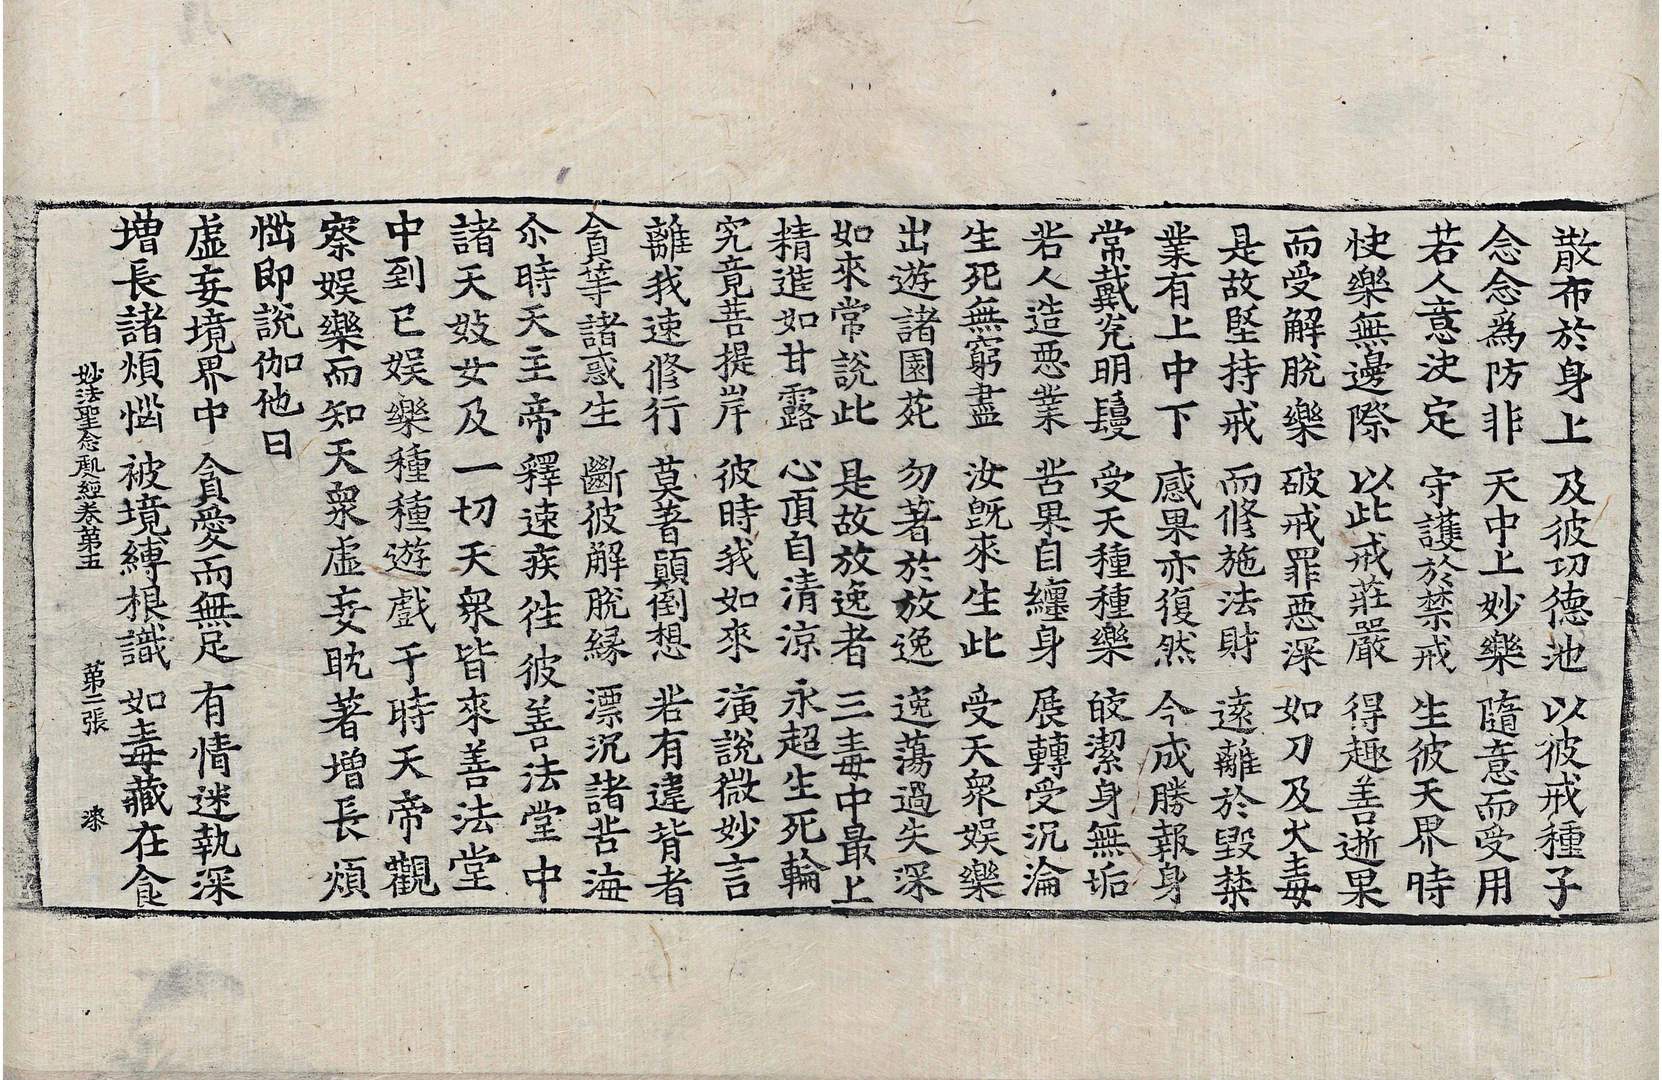 散布於身上 及彼功德池 以彼戒種子
念念爲防非 天中上妙樂 隨意而受用
若人意決定 守護於禁戒 生彼天界時
快樂無邊際 以此戒莊嚴 得趣善逝果
而受解脫樂 破戒罪惡深 如刀及火毒
是故堅持戒 而修施法財 遠離於毀禁
業有上中下 感果亦復然 今成勝報身
常戴光明鬘 受天種種樂 皎潔身無垢
若人造惡業 苦果自纏身 展轉受沉淪
生死無窮盡 汝旣來生此 受天衆娛樂
出遊諸園苑 勿著於放逸 逸蕩過失深
如來常說此 是故放逸者 三毒中最上
精進如甘露 心頂自清涼 永超生死輪
究竟菩提岸 彼時我如來 演說微妙言
離我速修行 莫著顚倒想 若有違背者
貪等諸惑生 斷彼解脫緣 漂沉諸苦海
尒時天主帝釋速疾往彼善法堂中
諸天妓女及一切天衆皆來善法堂
中到已娛樂種種遊戲于時天帝觀
察娛樂而知天衆虛妄耽著增長煩
惱即說伽他曰
虛妄境界中 貪愛而無足 有情迷執深
增長諸煩惱 被境縛根識 如毒藏在食
妙法聖念處經卷第五 第二張 漆